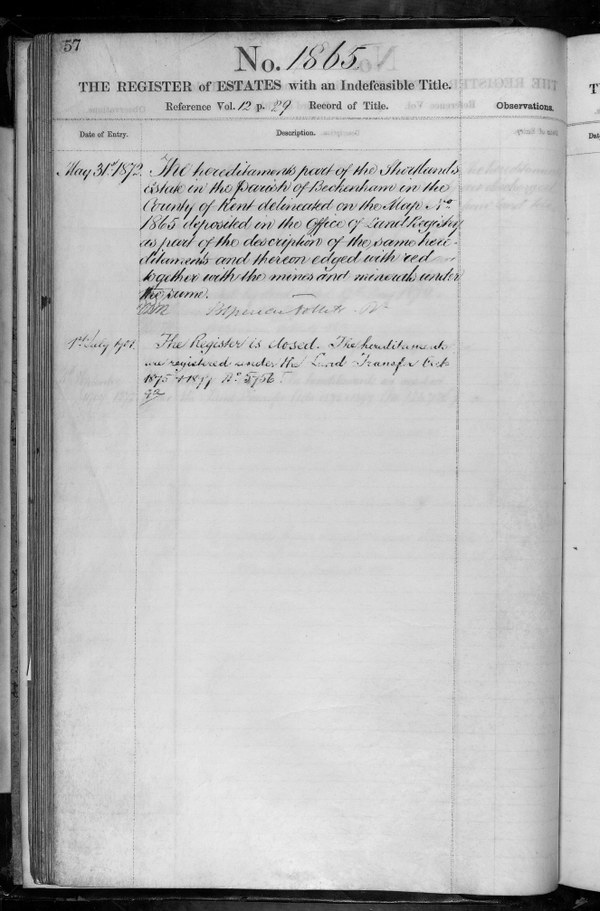 57
No. 1865
THE REGISTER of ESTATES with an Indefeasible Title.
Reference Vol. 12 p. 29 Record of Title. Observations.
Date of Entry. Description.
May 31st 1872. The hereditaments part of the Shortlands
Estate in the Parish of Beckenham in the
County of Kent delineated on the Map No.
1865 deposited in the Office of Land Registry
as part of the description of the same here-
ditaments and thereon edged with red
together with the mines and minerals under
the same.
1st July 1901. The Register is closed. The hereditaments
are registered under the Land Transfer Acts
1875 & 1897 No. 5756